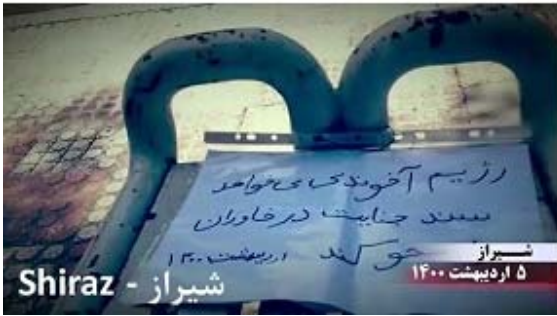 رژیم آخوندی می‌خواهد
سند جنایت در خاوران
محو کند اردیبهشت ۱۴۰۰
شیراز
۵ اردیبهشت ۱۴۰۰
Shiraz - شیراز